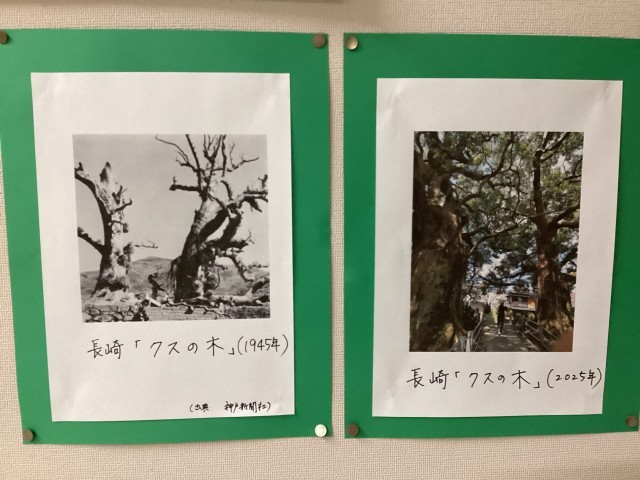 長崎「クスの木」(1945年)
(出典 神戸新聞社)
長崎「クスの木」(2025年)